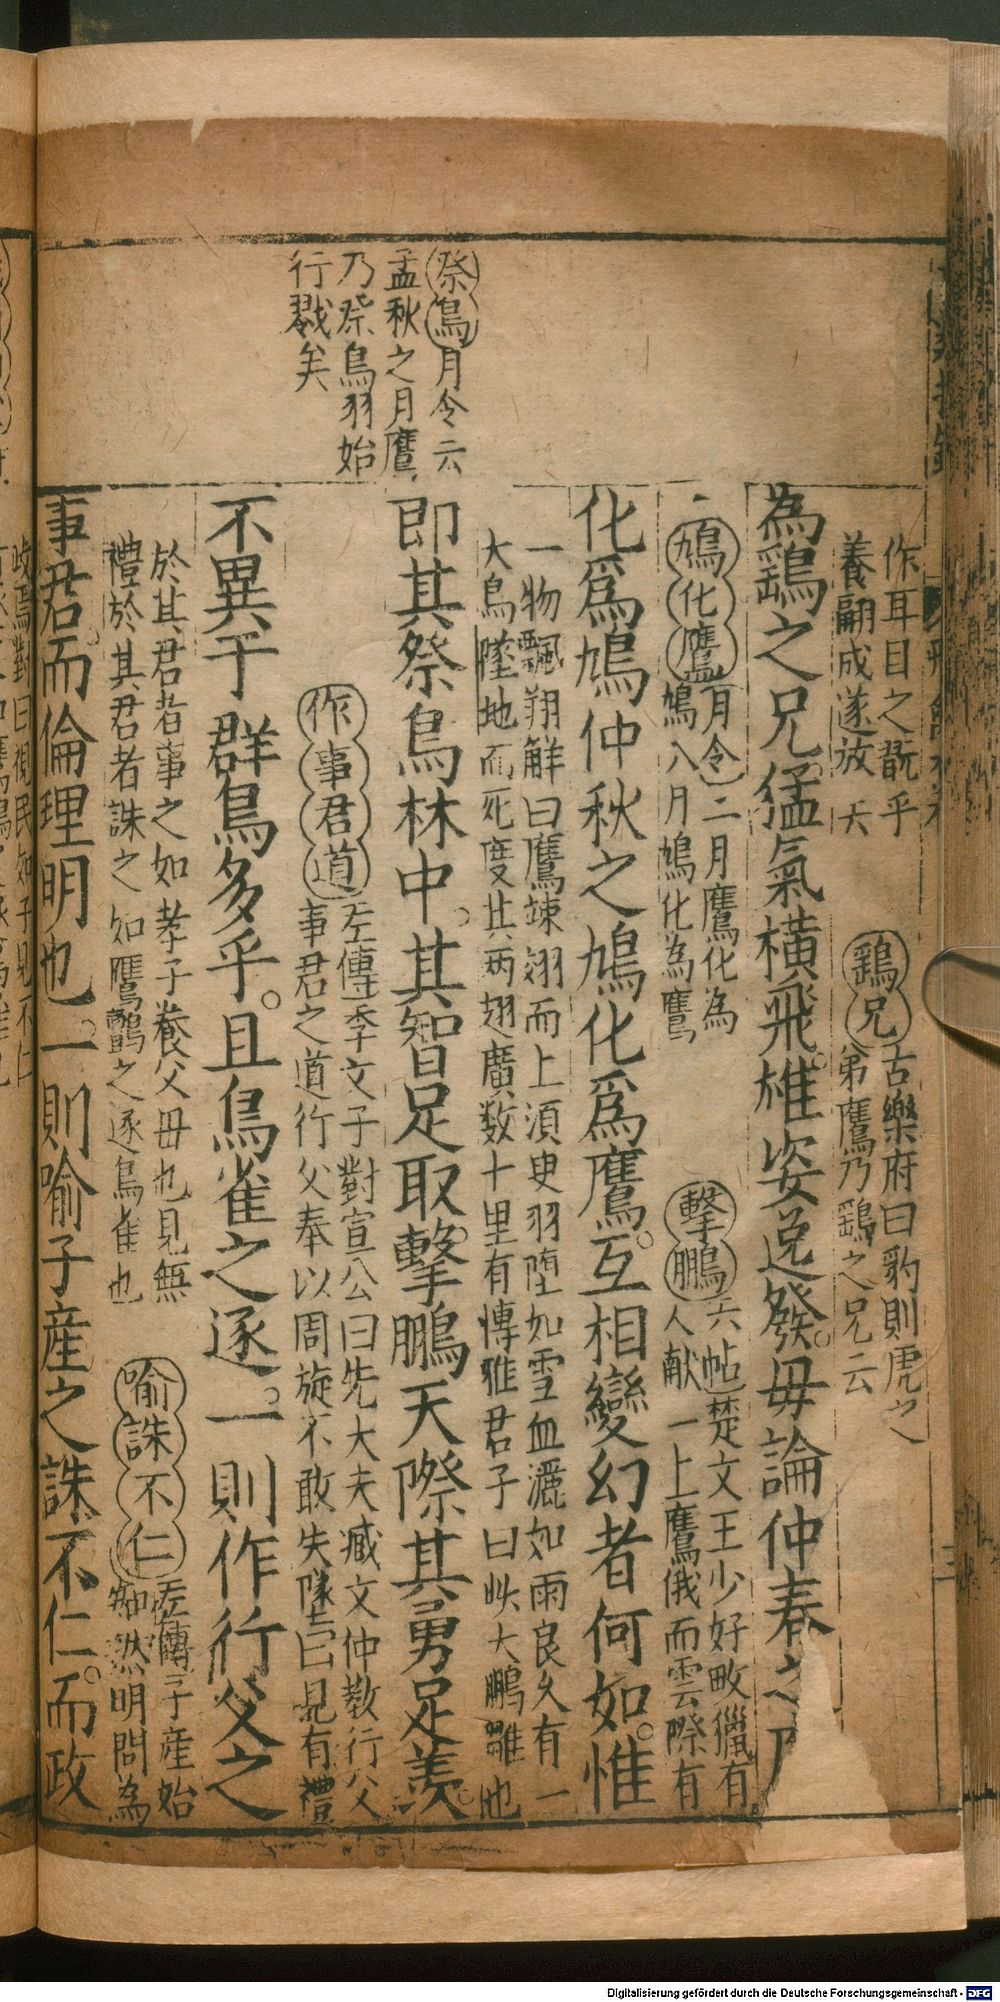 祭鳥月令云
孟秋之月鷹
乃祭鳥羽始
行戮矣
作耳目之翫乎
養翮成遂放
鷂兄古樂府曰豹則虎之
弟鷹乃鷂之兄云
為鷂之兄。猛氣橫飛。雄姿逸發。毋論仲春之
鳩化鷹月令二月鷹化為
鳩八月鳩化為鷹
擊鵬六帖楚文王少好畋獵有
人献一上鷹俄而雲際有
化爲鳩仲秋之鳩化爲鷹。互相變幻者何如。惟
一物飄翔鮮曰鷹竦翅而上須臾羽堕如雪血灑如雨良久有一
大鳥墜地而死度其两翅廣数十里有博雅君子曰此大鵬雛也
即其祭鳥林中。其智足取。擊鵬天際其勇足羨。
作事君道左傳季文子對宣公曰先大夫臧文仲教行父
事君之道行父奉以周旋不敢失隊曰見有禮
不異于群鳥多乎。且鳥雀之逐。一則作行父之
於其君者事之如孝子養父毋也見無
禮於其君者誅之如鷹鸇之逐鳥雀也
喻誅不仁左傳子産始
知然明問為
事君。而倫理明也。一則喻子産之誅不仁。而政
Digitalisierung gefördert durch die Deutsche Forschungsgemeinschaft - DFG